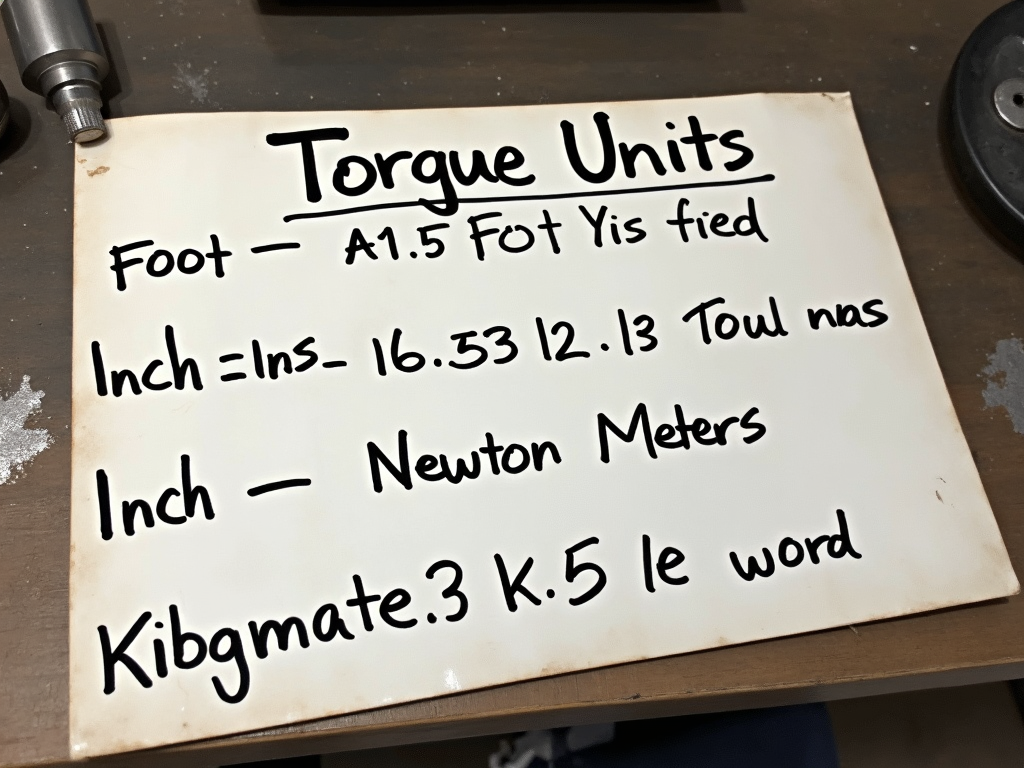 Torgue Units
Foot — A1.5 Fot Yis fied
Inch =Ins- 16.53 12.13 Toul nas
Inch — Newton Meters
Kibgmate.3 K.5 le word